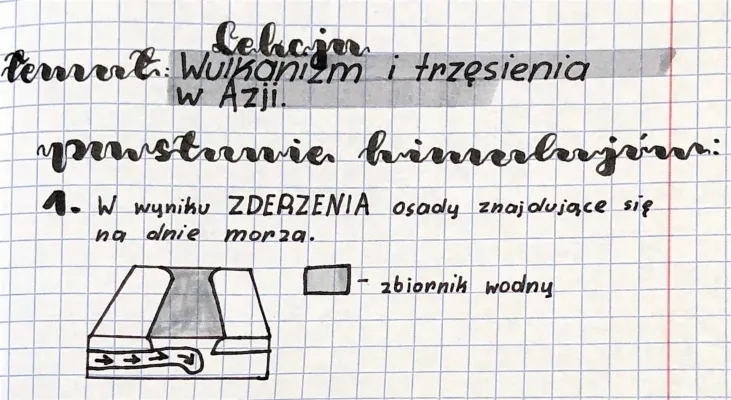 Lekcja
temat: Wulkanizm i trzęsienia
w Azji.
powstanie himalajów:
1. W wyniku ZDERZENIA osady znajdujące się
na dnie morza.
- zbiornik wodny